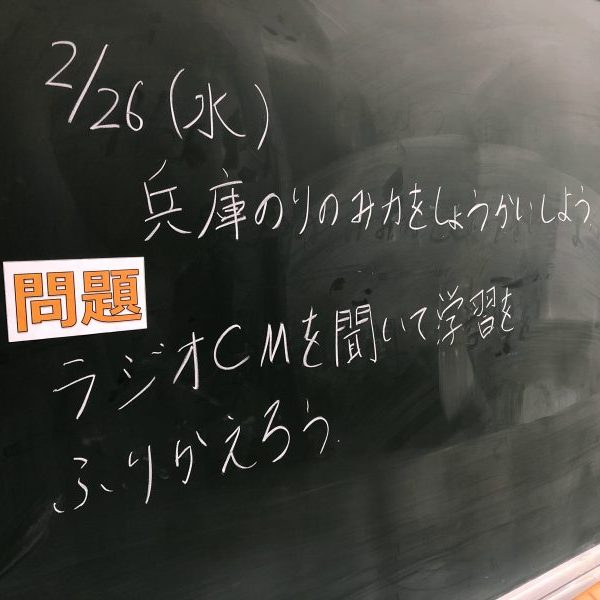 2/26(水)
兵庫のりのみ力をしょうかいしよう
問題
ラジオCMを聞いて学習を
ふりかえろう.